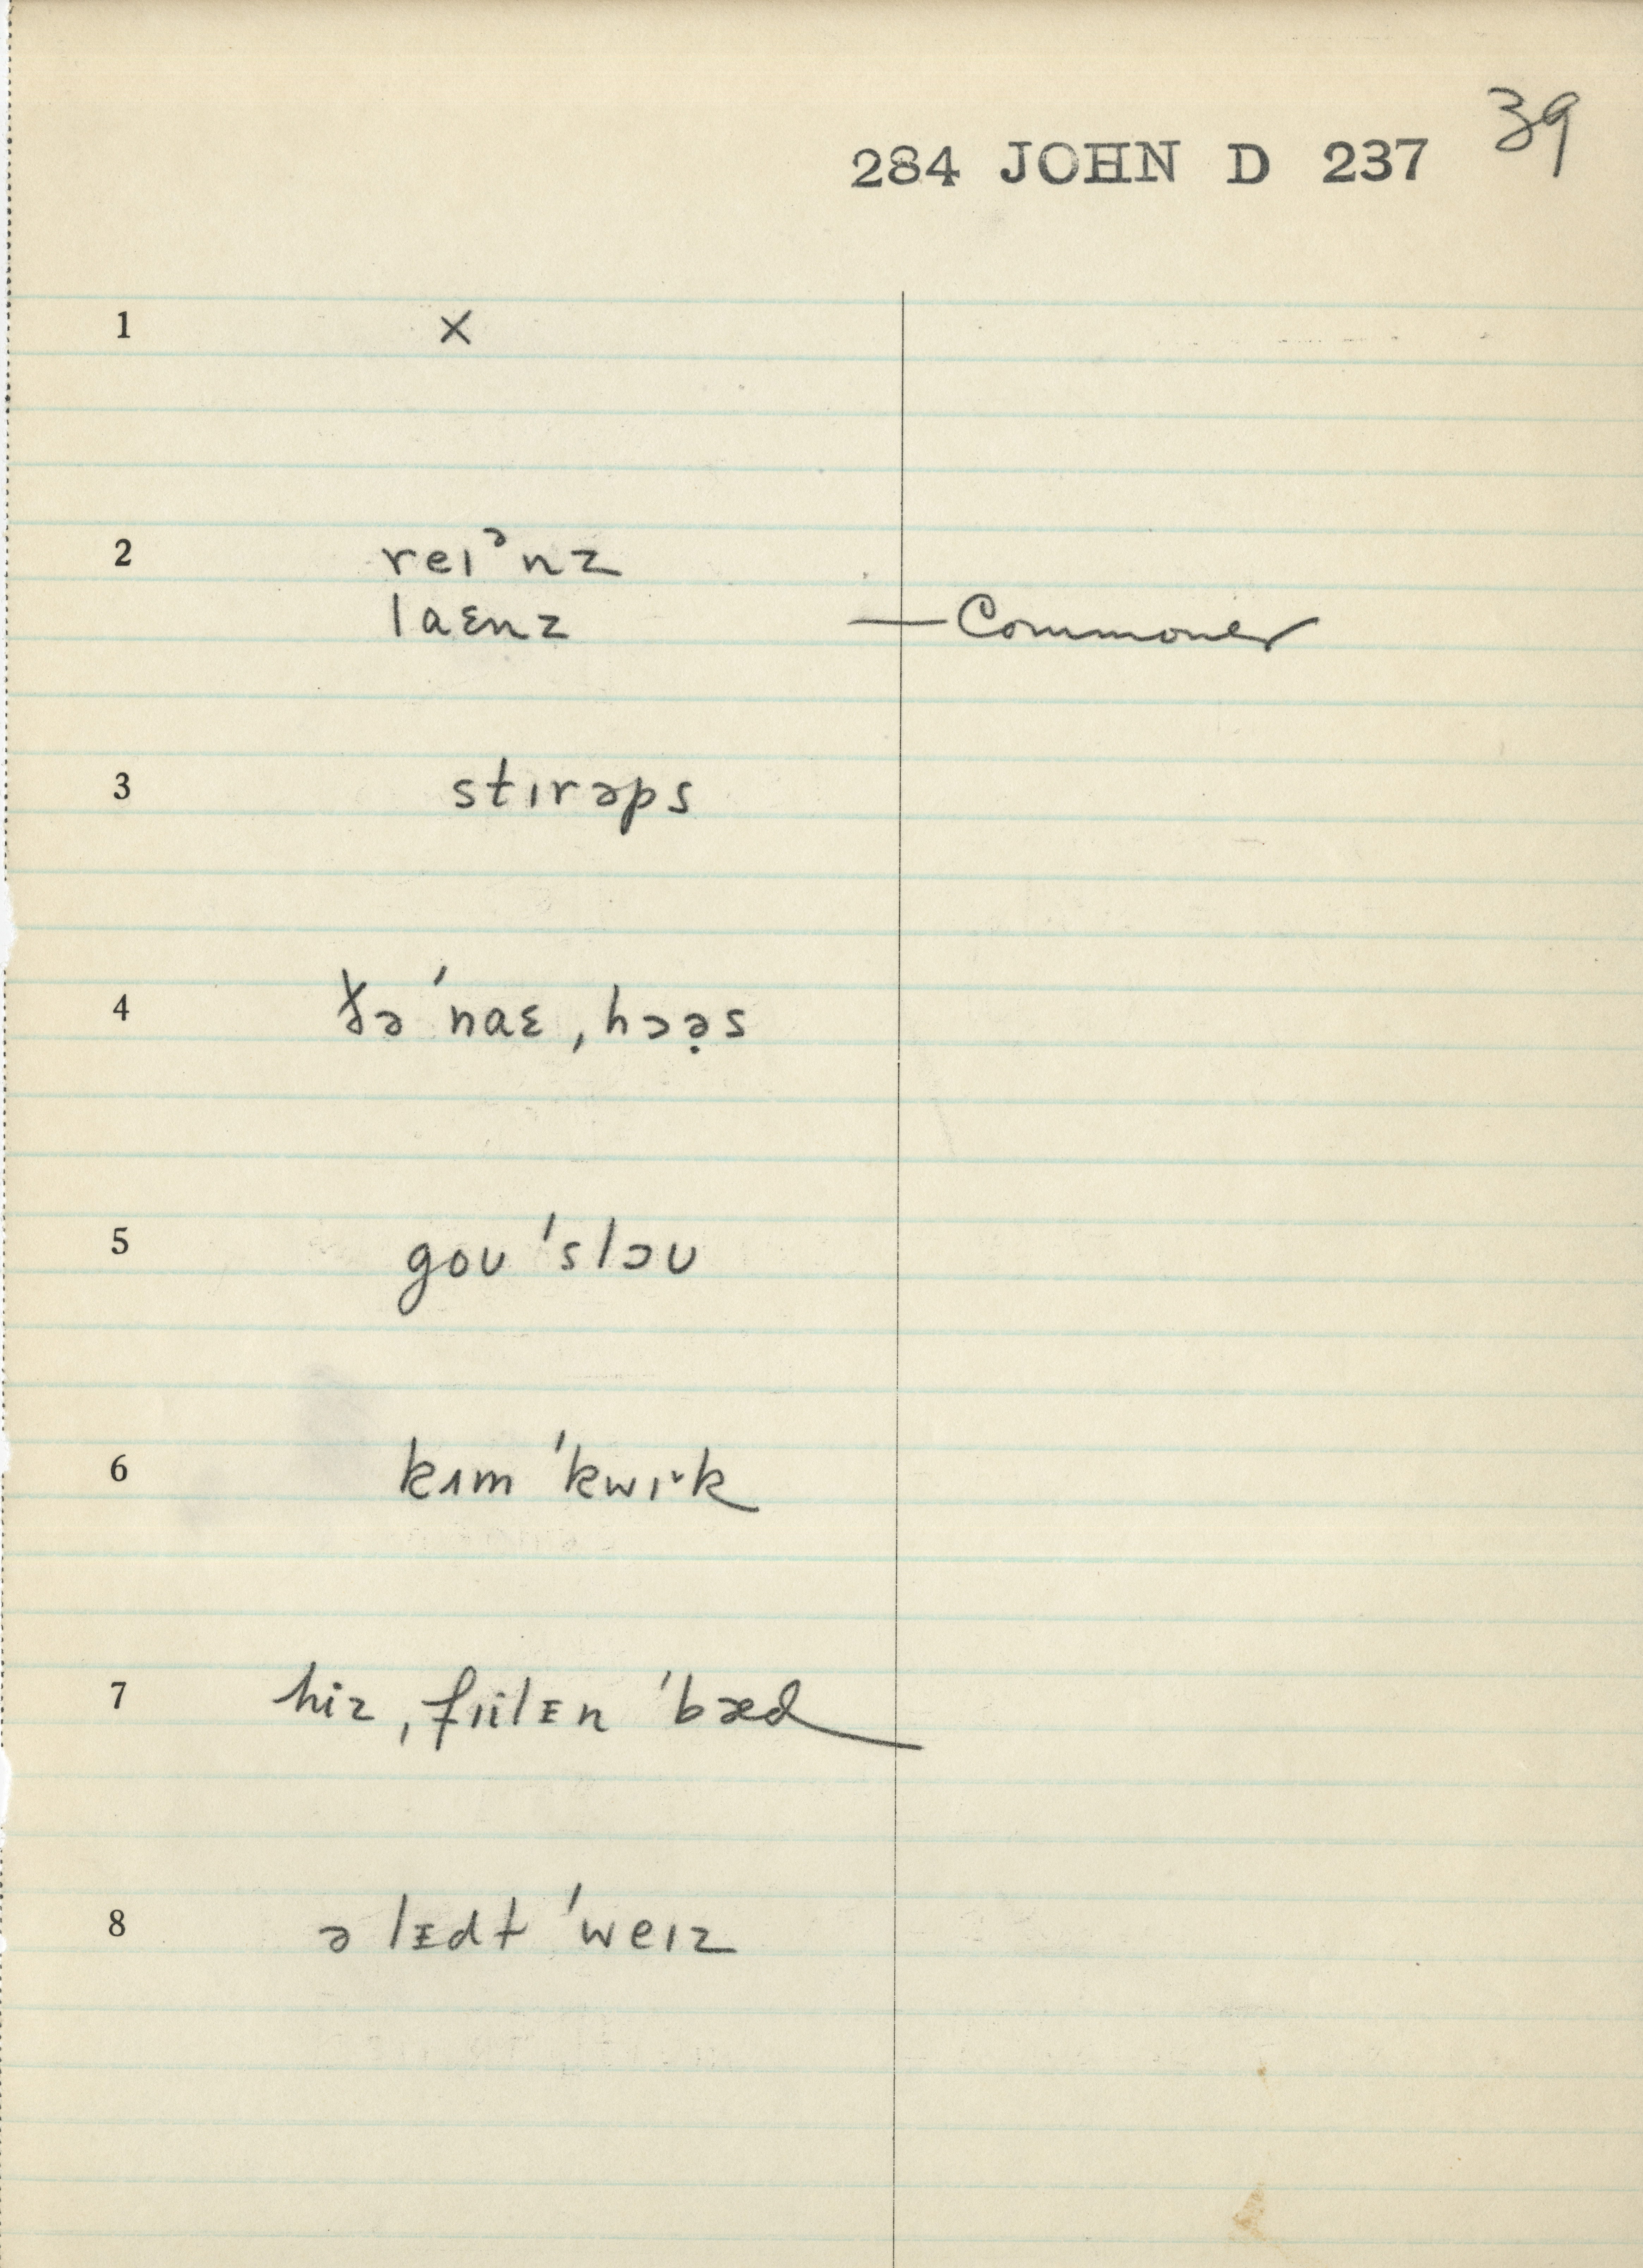 39
284 JOHN D 237
1 x
2 reɪᵊnz
laɛnz — Commoner
3 stɪrəps
4 ðə ˈnaɛ ˌhɔə̣s
5 goʊ ˈslɔʊ
6 kɪm ˈkwɪ˞k
7 hiz ˌfɪilᴇn ˈbæd
8 ə lᴇdt ˈweɪz